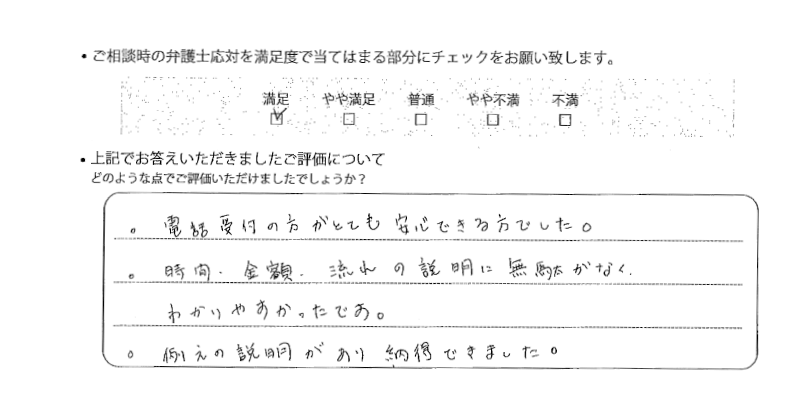 ・ご相談時の弁護士応対を満足度で当てはまる部分にチェックをお願い致します。
満足 やや満足 普通 やや不満 不満
☑ □ □ □ □
・上記でお答えいただきましたご評価について
どのような点でご評価いただけましたでしょうか？
。電話受付の方がとても安心できる方でした。
。時間・金額・流れの説明に無駄がなく、
わかりやすかったです。
。例えの説明があり納得できました。